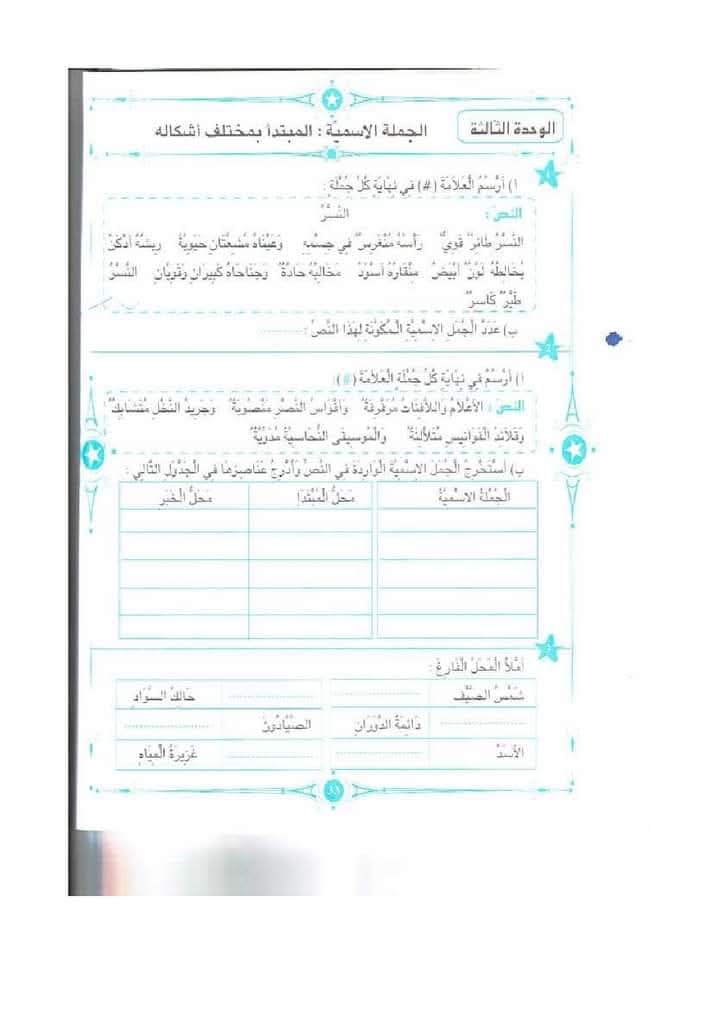 الوحدة الثالثة
الجملة الاسميّة : المبتدأ بمختلف أشكاله
1
أ) أَرْسُمُ الْعَلاَمَةَ (#) فِي نِهَايَةِ كُلِّ جُمْلَةٍ :
النصّ : النَّسْرُ
النَّسْرُ طَائِرٌ قَوِيٌّ رَأْسُهُ مُنْغَرِسٌ فِي جِسْمِهِ وَعَيْنَاهُ مُشِعَّتَانِ حَيَوِيَّةً رِيشُهُ أَدْكَنُ
يُخَالِطُهُ لَوْنٌ أَبْيَضُ مِنْقَارُهُ أَسْوَدُ مَخَالِبُهُ حَادَّةٌ وَجَنَاحَاهُ كَبِيرَانِ وَقَوِيَّانِ النَّسْرُ
طَيْرٌ كَاسِرٌ
ب) عَدَدُ الْجُمَلِ الاِسْمِيَّةِ الْمُكَوِّنَةِ لِهَذَا النَّصِّ : ............
2
أ) أَرْسُمُ فِي نِهَايَةِ كُلِّ جُمْلَةٍ الْعَلاَمَةَ (#):
النصّ : الأَعْلاَمُ وَاللاَّفِتَاتُ مُرَفْرِفَةٌ وَأَقْوَاسُ النَّصْرِ مَنْصُوبَةٌ وَجَرِيدُ النَّخْلِ مُتَشَابِكٌ
وَقَلاَئِدُ الْفَوَانِيسِ مُتَلأْلِئَةٌ وَالْمُوسِيقَى النُّحَاسِيَّةُ مُدَوِّيَةٌ
ب) أَسْتَخْرِجُ الْجُمَلَ الاِسْمِيَّةَ الْوَارِدَةَ فِي النَّصِّ وَأُدْرِجُ عَنَاصِرَهَا فِي الْجَدْوَلِ التَّالِي :
الْجُمْلَةُ الاِسْمِيَّةُ مَحَلُّ الْمُبْتَدَإِ مَحَلُّ الْخَبَرِ
3
أَمْلَأُ الْمَحَلَّ الْفَارِغَ :
شَمْسُ الصَّيْفِ ............ ............ حَالِكُ السَّوَادِ
............ دَائِمَةُ الدَّوَرَانِ الصَّيَّادُونَ ............
الأَسَدُ ............ ............ غَزِيرَةُ الْمِيَاهِ
33